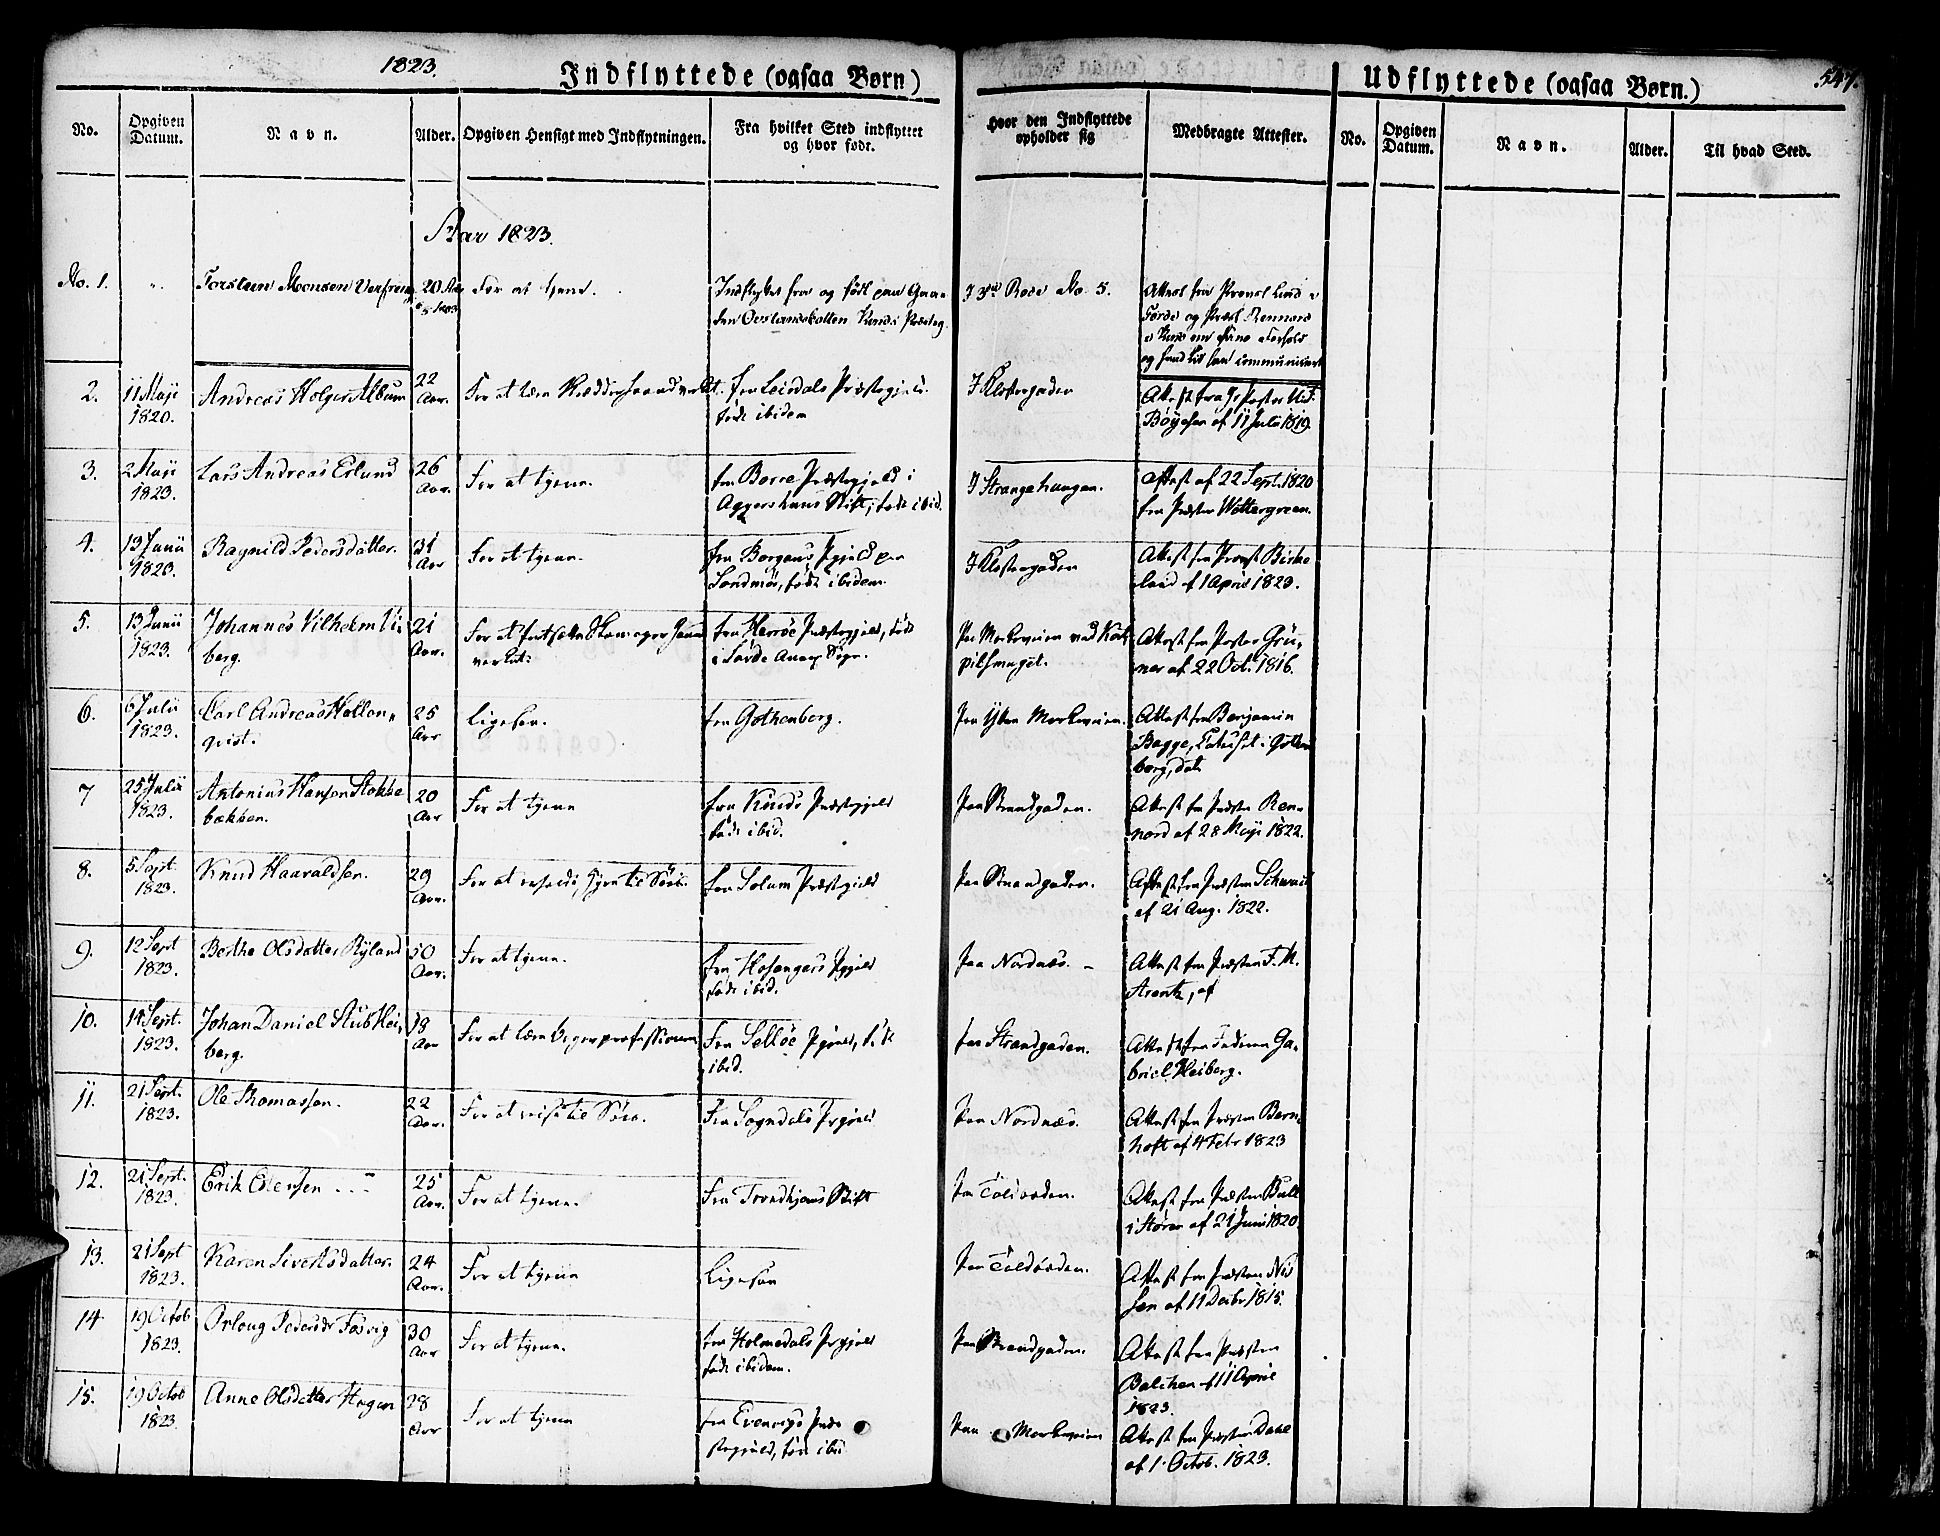 1823.
Indflyttede (ogsaa Børn)
Udflyttede (ogsaa Børn.)
547.
No. Opgiven Datum. Navn. Alder. Opgiven Hensigt med Indflytningen. Fra hvilket Sted indflyttet og hvor født. Hvor den Indflyttede opholder sig Medbragte Attester. No. Opgiven Datum. Navn. Alder. Til hvad Sted.
Aar 1823.
No. 1. " Torsten Monsen 20 Aar For at tjene. Indflyttet fra og født paa Gaar-
den Præsteg.
I 3die Rode No. 5. Attest fra Provst Lind i
Førde og Præst Rennord
og
2. 11 Maji 1820. Andreas Holger Album 22 Aar. For at lære fra Leirdals Præstegjeld.
født ibidem
I Klostergaden Attest fra
Bøyesen af 11 Juli 1819.
3. 2 Maji 1823. Lars Andreas Edlund 26 Aar. For at tjene. fra Borre Præstegjeld i
Aggershuus Stift, født ibid.
I Strangehaugen. Attest af 22 Sept. 1820
fra Præsten Wettergreen.
4. 13 Junii 1823. Ragnild Pedersdatter. 31 Aar For at tjene. fra Borgens Pgjeld paa
Søndmør, født ibidem.
I Klostergaden Attest fra Provst Birke-
land af 1 April 1823.
5. 13 Junii 1823. Johannes Vilhelm Vi-
berg. 21 Aar. For at fortsætte Skomager Haand-
verket. fra Herrøe Præstegjeld, født
i
Paa Markeveien ved
Attest fra Pastor Grü-
ner af 22 Oct. 1816.
6. 6 Julii 1823. Carl Andreas Hallon-
qvist. 25 Aar Ligesaa. fra Gothenberg. Paa Ytre Markeveien. Attest fra Benjamin
Bagge, i Gothen-
berg, dat.
7 25 Julii 1823. Antonius Hansen Stokke-
bækken. 20 Aar For at tjene fra Kinds Præstegjeld
født ibid.
Paa Strandgaden. Attest fra Præsten Ren-
nord af 28 Maji 1822.
8. 5 Sept. 1823. Knud Haaraldsen. 29 Aar. For at til Søes. fra Solum Præstegjeld Paa Strandgaden. Attest fra Præsten
af 21 Aug. 1822.
9. 12 Sept 1823. Berthe Olsdatter Ryland 50 Aar. For at tjene. fra Hosangers Pgjeld
født ibid.
Paa Nordnæs. Attest fra Præsten F. M.
Arentz, af
10. 14 Sept. 1823. Johan Daniel Stub Hei-
berg. 18 Aar For at lære bager professionen Fra Selløe Pgjeld, født
ibid.
Paa Strandgaden. Attest fra Faderen Ga-
briel Heiberg.
11. 21 Sept. 1823. Ole Thomassen. 22 Aar. For at reise til Søes. Fra Sogndals Prgjeld Paa Nordnæs. Attest fra Præsten Barn-
hoft af 4 Febr 1823
12. 21 Sept. 1823. Erik Estensen 25 Aar. For at tjene. Fra Trondhjems Stift Paa Toldboden. Attest fra Præsten Bull
i Støren af 21 Juni 1820.
13. 21 Sept 1823. Karen Sivertsdatter. 24 Aar. For at tjene Ligesaa Paa Toldboden. Attest fra Præsten Nis-
sen af 11 Decbr 1815.
14 19 Octob 1823. Orloug Pedersdr Fosvig 30 Aar For at tjene. fra Holmedals Prgjeld
født ibidem.
Paa Strandgaden. Attest fra Præsten
Balchen af 11 April
1823.
15. 19 Octob 1823. Anne Olsdatter Hogen 28 Aar For at tjene fra Evenvigs Præ-
stegjeld, født ibid
Paa Markeveien Attest fra Præsten Daae
af 1. Octob. 1823.